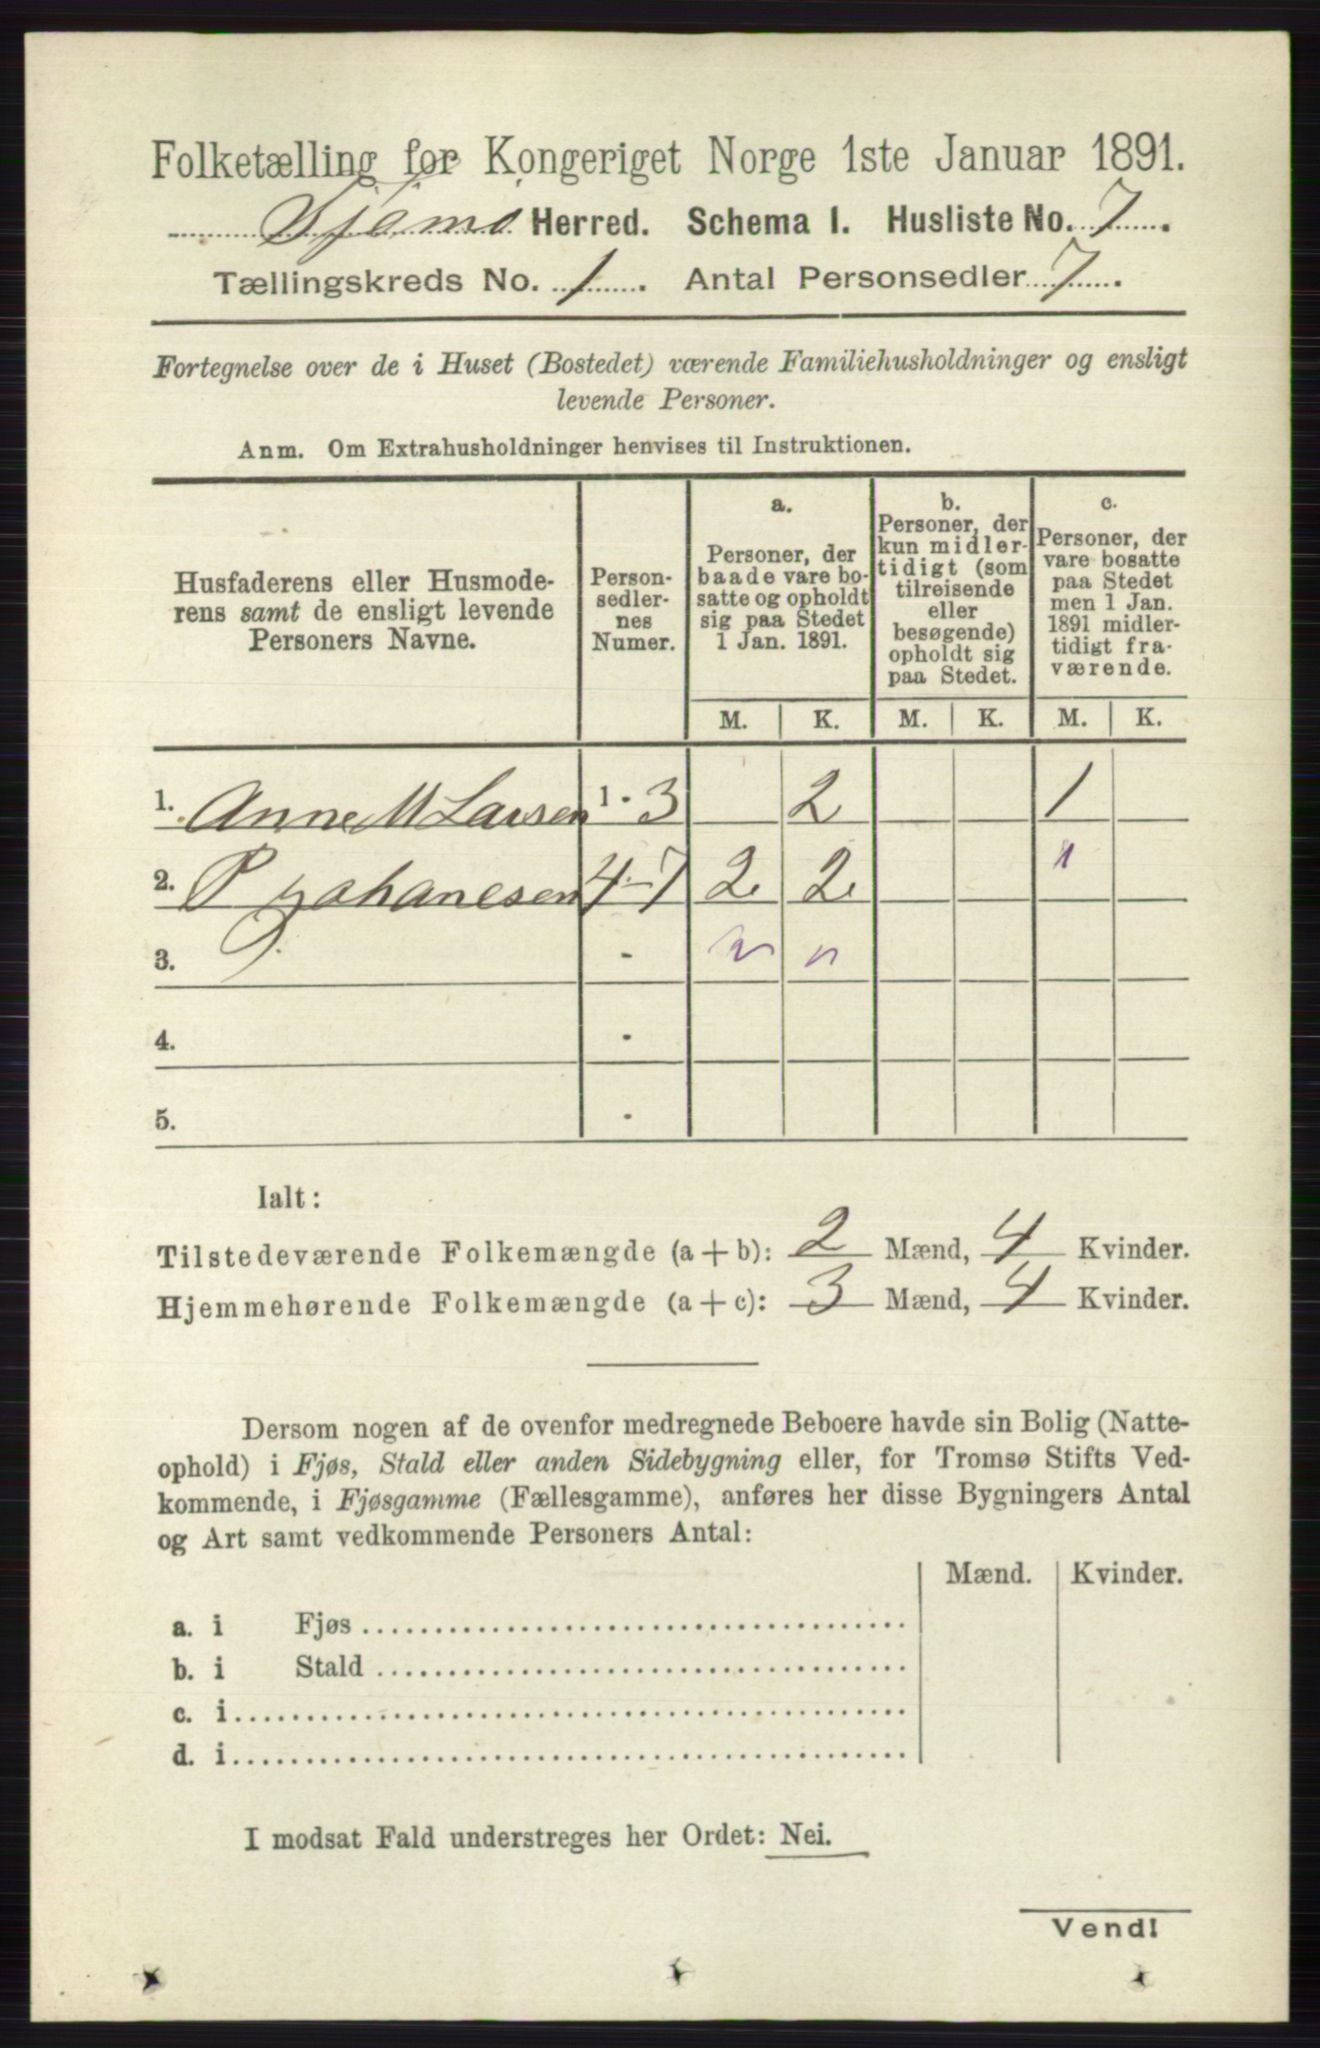 Folketælling for Kongeriget Norge 1ste Januar 1891.
Tjømø Herred. Schema 1. Husliste No. 7.
Tællingskreds No. 1. Antal Personsedler 7.
Fortegnelse over de i Huset (Bostedet) værende Familiehusholdninger og ensligt
levende Personer.
Anm. Om Extrahusholdninger henvises til Instruktionen.
Husfaderens eller Husmode-
rens samt de ensligt levende
Personers Navne.
Person-
sedler-
nes
Numer.
a.
Personer, der
baade vare bo-
satte og opholdt
sig paa Stedet
1 Jan. 1891.
b.
Personer, der
kun midler-
tidigt (som
tilreisende
eller
besøgende)
opholdt sig
paa Stedet.
c.
Personer, der
vare bosatte
paa Stedet
men 1 Jan.
1891 midler-
tidigt fra-
værende.
M. K. M. K. M. K.
1. Anne M Larsen 1 - 3 2 1
2. P Johanesen 4 - 7 2 2 1
3. -
4. -
5. -
Ialt:
Tilstedeværende Folkemængde (a + b): 2 Mænd, 4 Kvinder.
Hjemmehørende Folkemængde (a + c): 3 Mænd, 4 Kvinder.
Dersom nogen af de ovenfor medregnede Beboere havde sin Bolig (Natte-
ophold) i Fjøs, Stald eller anden Sidebygning eller, for Tromsø Stifts Ved-
kommende, i Fjøsgamme (Fællesgamme), anføres her disse Bygningers Antal
og Art samt vedkommende Personers Antal:
Mænd. Kvinder.
a. i Fjøs
b. i Stald
c. i
d. i
I modsat Fald understreges her Ordet: Nei.
Vend!